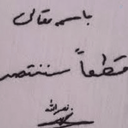 باسمه تعالى
قطعاً سننتصر
نصرالله